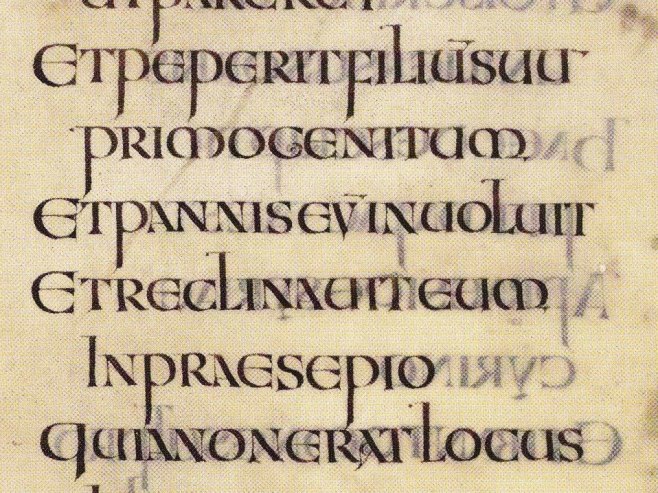 UTPARERET
ETPEPERITFILIŪSUU
PRIMOGENITUM
ETPANNISEV̄INUOLUIT
ETRECLINAUITEUM
INPRAESEPIO
QUIANONERATLOCUS